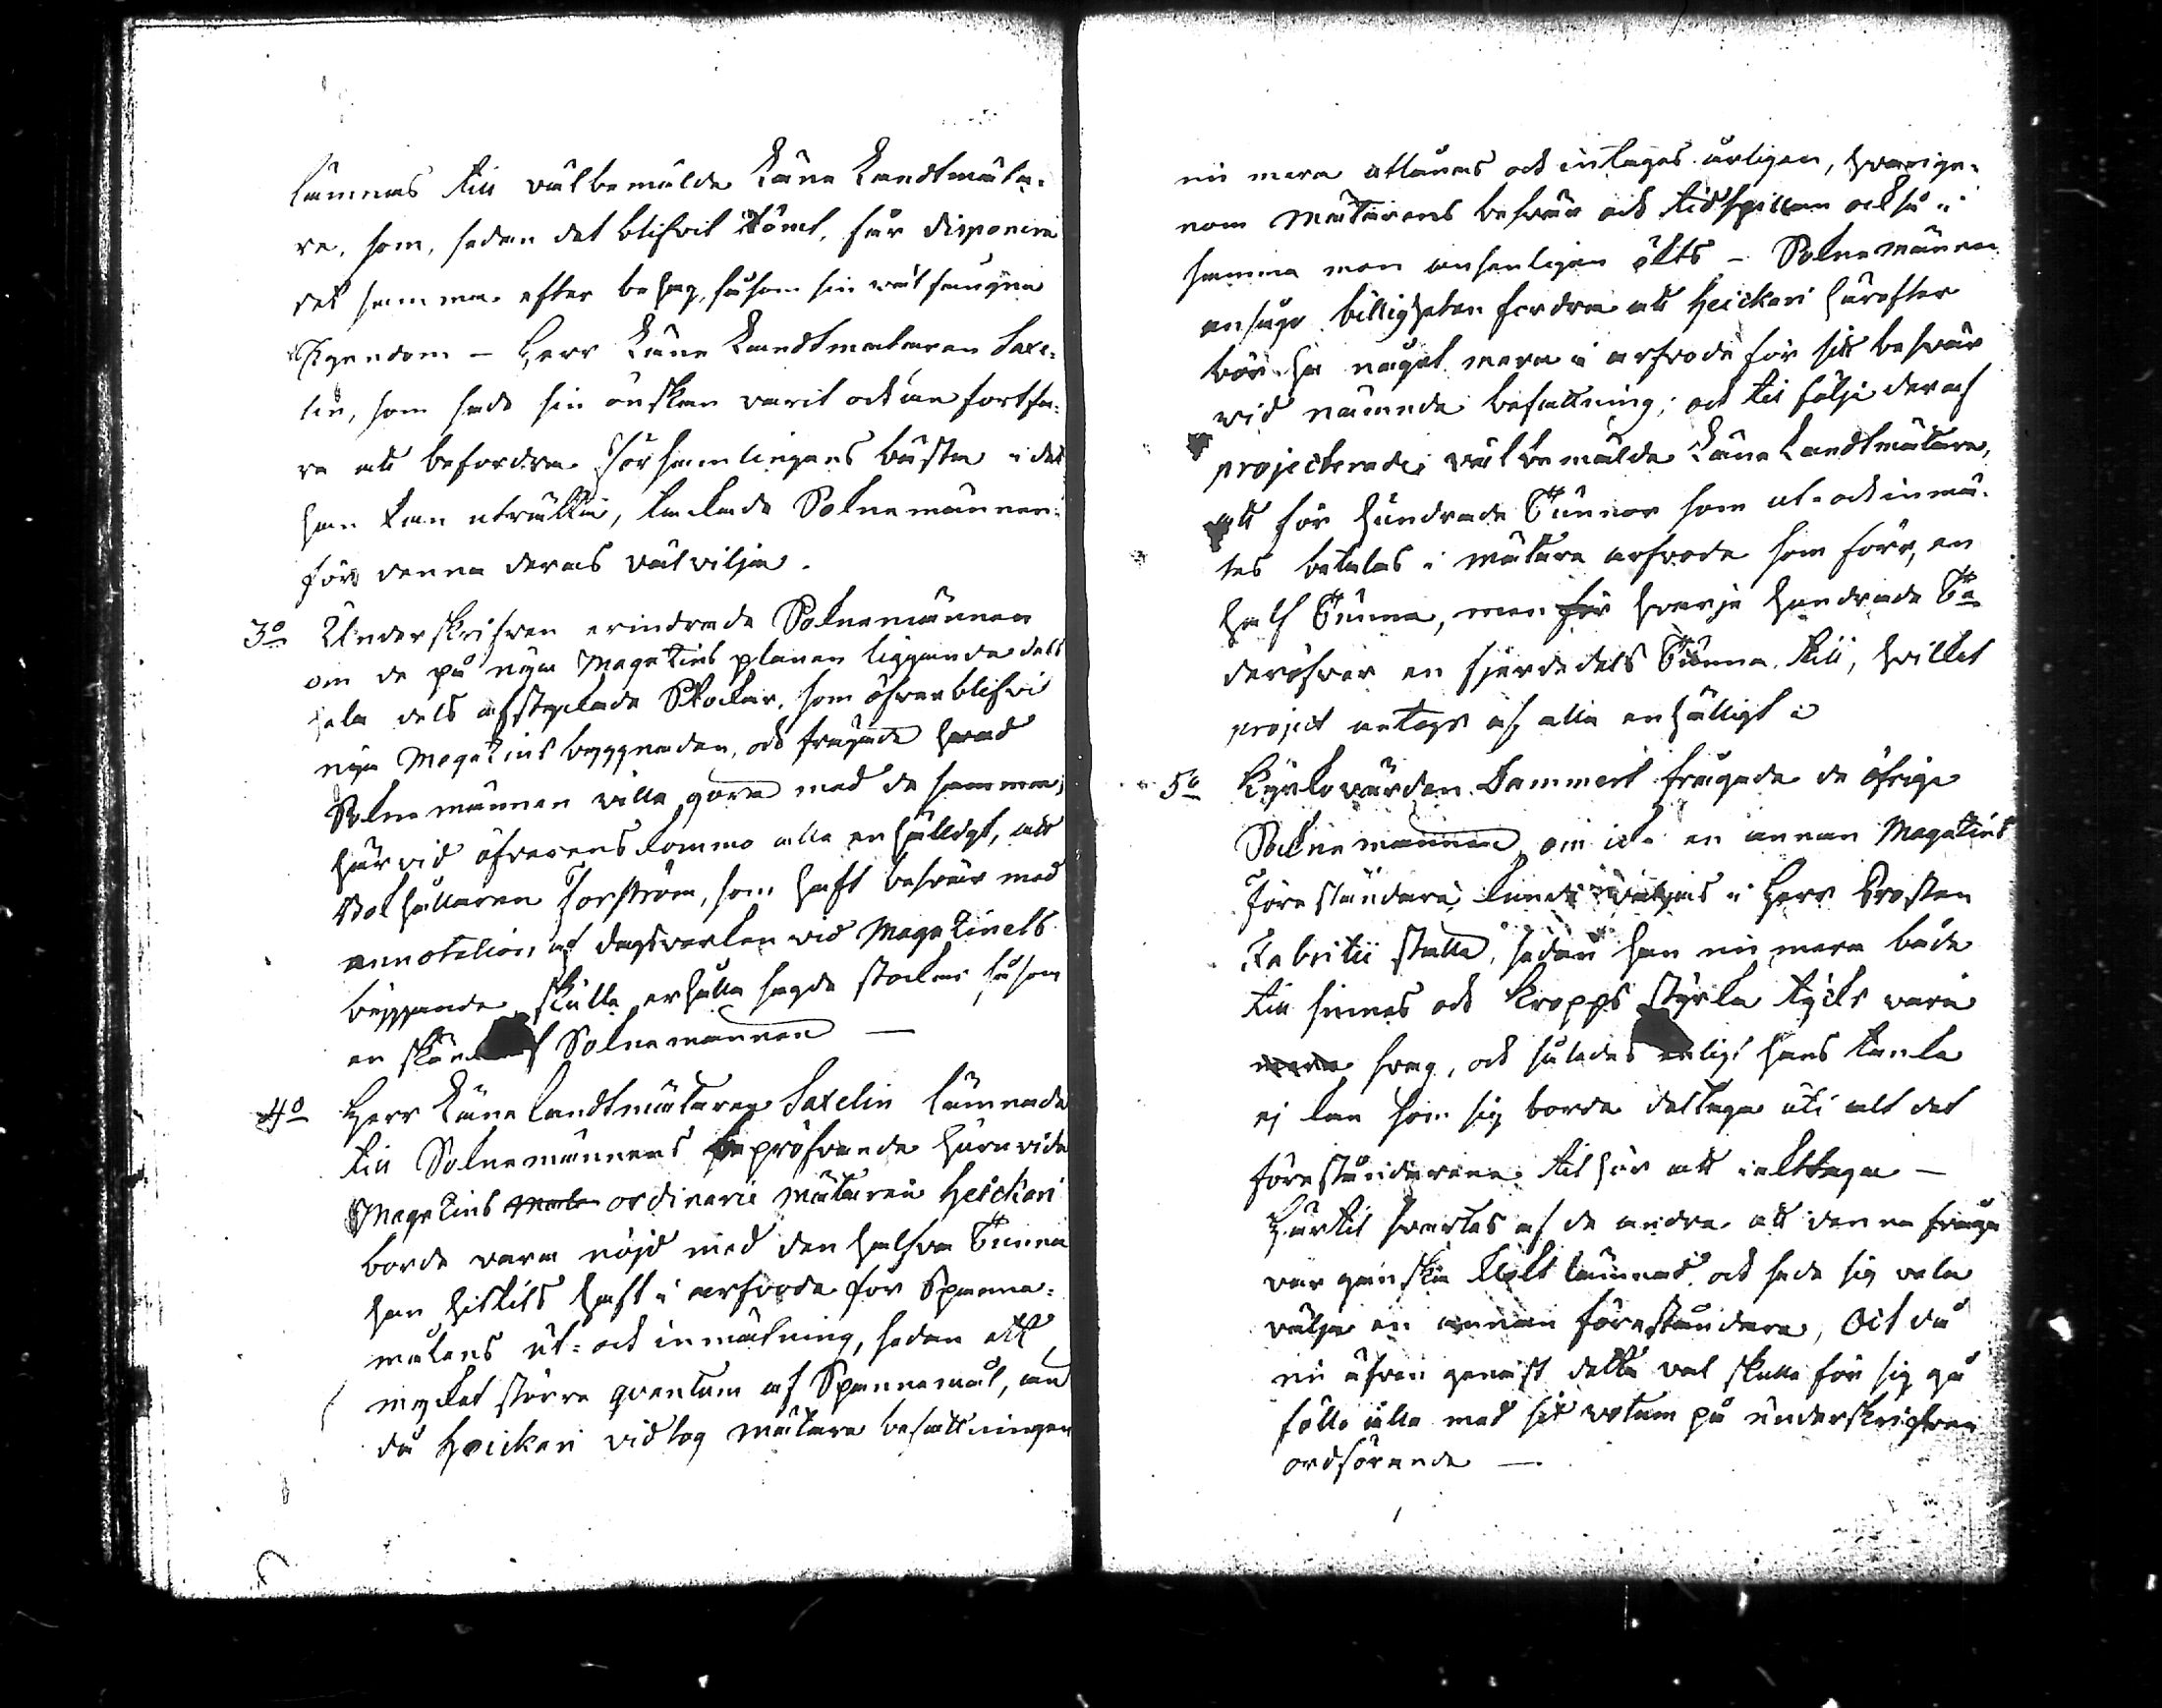 lämnas till välbemälde Läne Landtmäta-
re, som, sedan det blifvit tömt, får disponera
det samma efter behag, såsom sin välfångna
Egendom – Herr Läne Landtmätaren Saxe-
lin, som sade sin önskan varit och än fortfa-
ra att befordra Församlingens bästa i det
han kan uträtta, tackade Sokne männen
för denna deras välvilja.
3o Underskrifven erindrade Sokne männen
om de på nya Magatins planen liggande dels
hela dels afstyckade Stockar, som öfverblifvit
nya Magatins byggnaden, och frågade hvad
Sokne männen ville göra med de samma;
härvid öfverenskommo alla enhälligt, att
Bolhållaren Forsström, som haft besvär med
annotation af dagsverken vid Magatinets
byggande, skulle erhålla sagde stockar såsom
en skänk af Sokne männen —
4o Herr Läne Landtmätaren Saxelin lämnade
till Sokne männens bepröfvande huruvida
Magatins ordinarie mätaren Heickari
borde vara nöjd med den halfva Tunna
han hittils haft i arfvode för Spanne-
målens ut- och inmätning, sedan ett
mycket större quantum af Spannemål, än
då Heickari vidtog mätare befattningen
nu mera utlånas och intages årligen, hvarige-
nom mätarens besvär och tidspillan också i
samma mon ansenligen ökts – Sokne männen
ansågo billigheten fordra att Heickari härefter
bör ha något mera i arfvode för sitt besvär
vid nämnde befattning; och till följe deraf
projecterade välbemälde Läne Landtmätare,
att för hundrade Tunnor som ut- och inmä-
tes betalas i mätare arfvode som förr, en
half Tunna, men för hvarje hundrade Ta
deröfver en fjerdedels Tunna till, hvilket
project antogs af alla enhälligt
5o Kyrkovärden Dammert frågade de öfrige
Sokne männen om icke en annan Magatins
Föreståndare kunde väljas i Herr Prosten
Fabritii ställe, sedan han nu mera både
till sinnes och kropps styrka tycks vara
mera svag, och således enligt hans tanke
ej kan som sig borde deltaga uti alt det
föreståndarene tilhör att iakttaga —
Härtil svartes af de andra att denna fråga
var ganska klokt lämnad och sade sig vela
välja en annan föreståndare, Och då
nu äfven genast detta val skulle för sig gå
föllo alla med sit votum på underskrifven
ordförande —